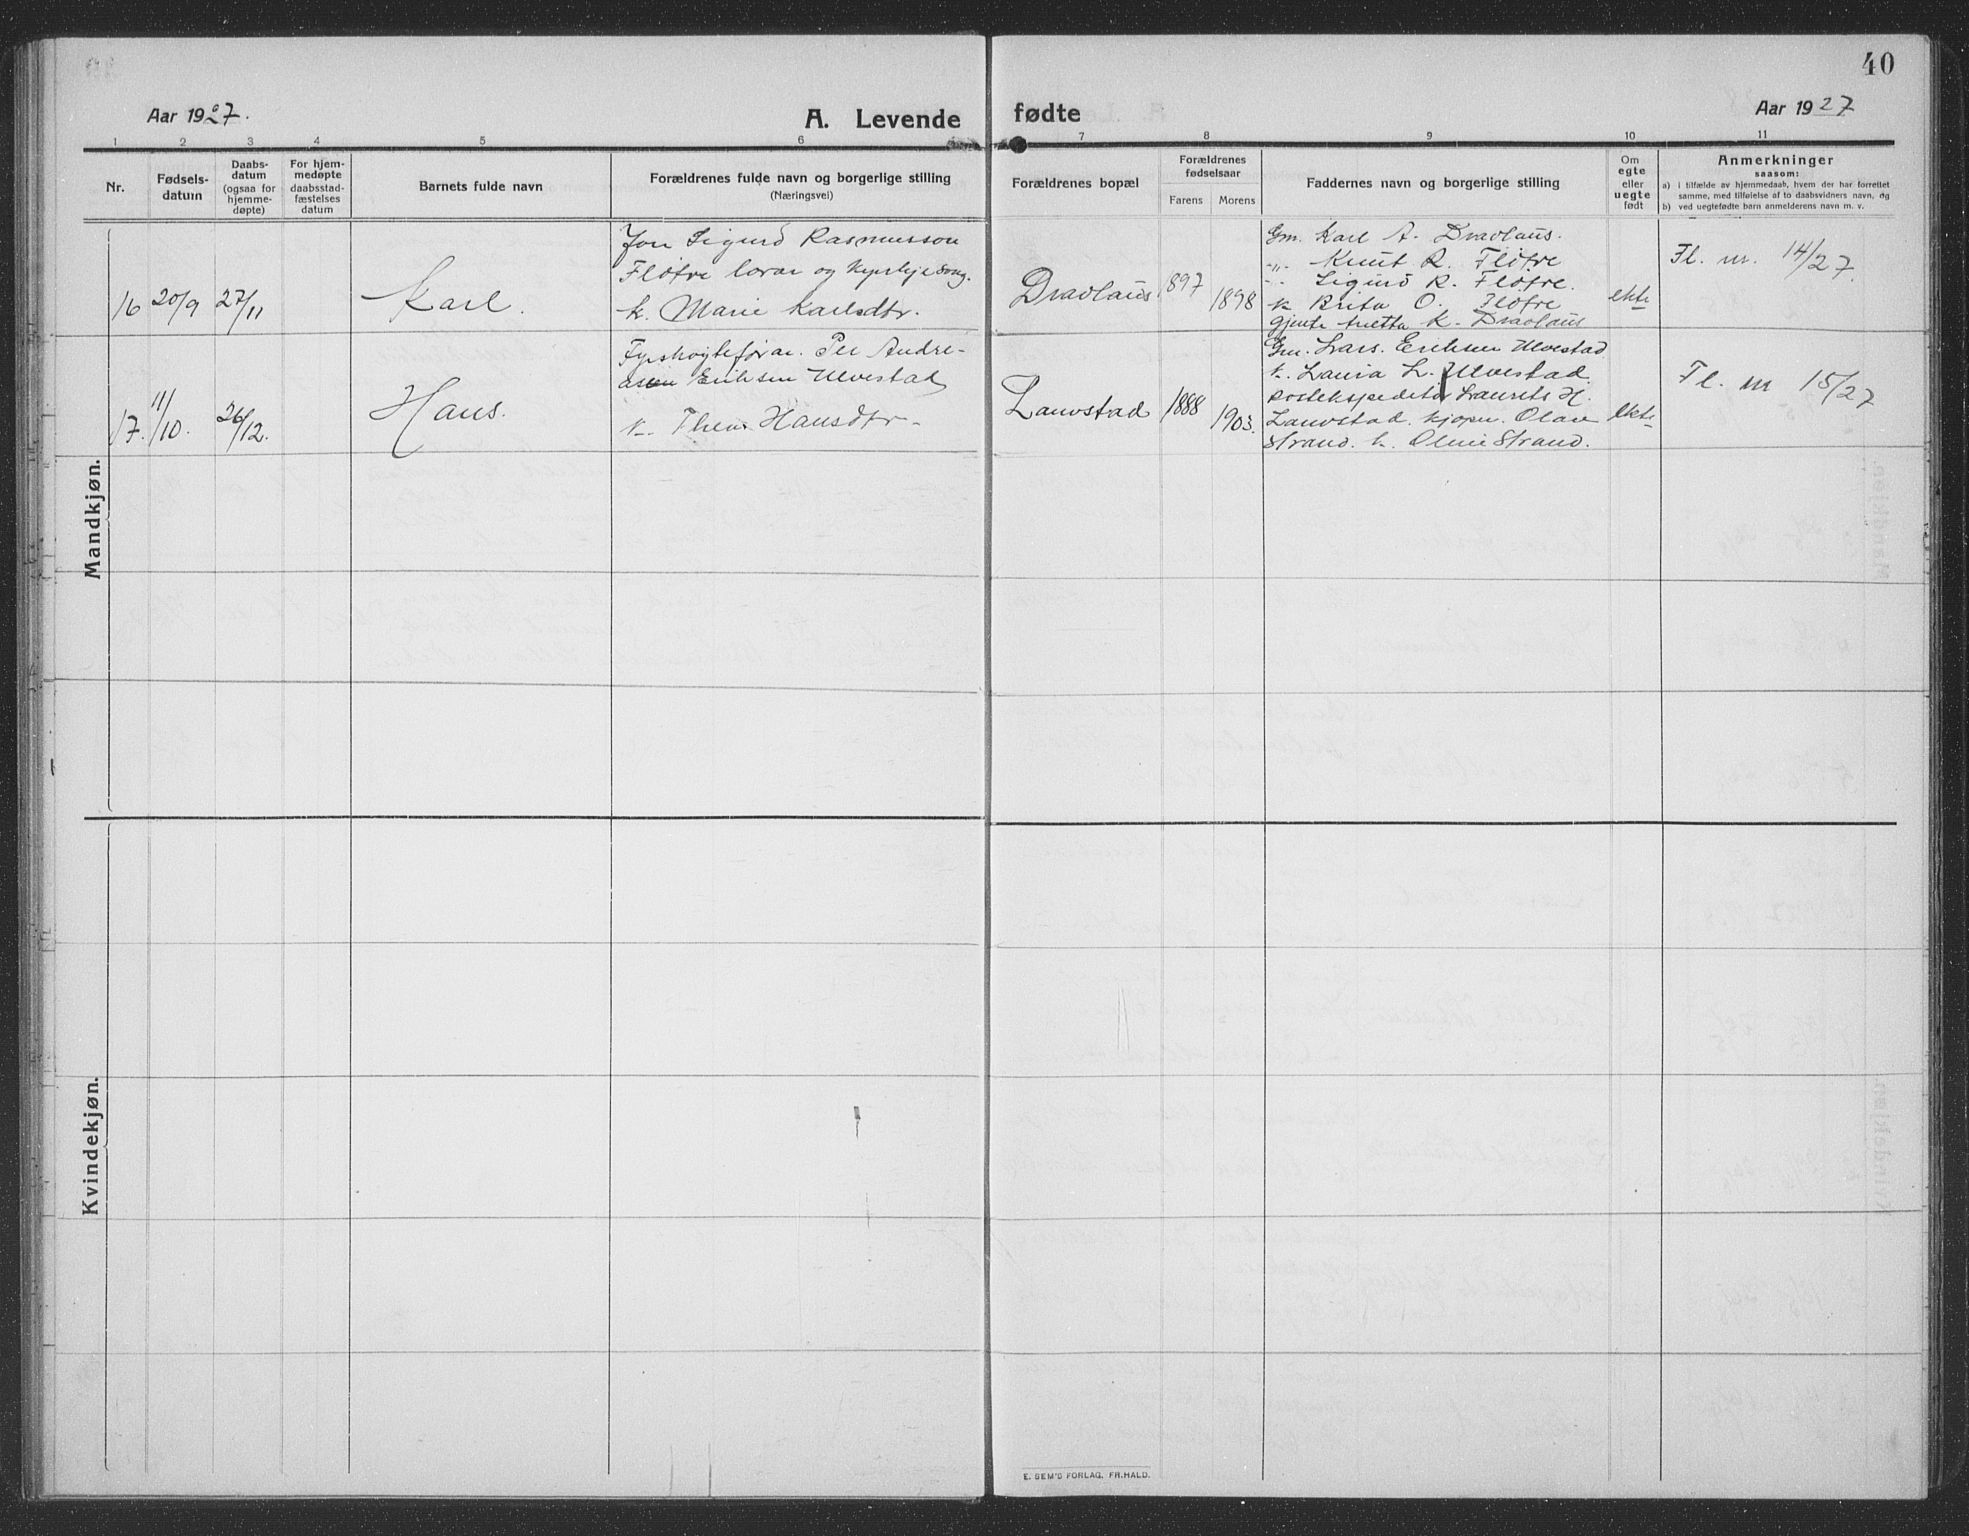 40
Aar 1927.
A. Levende fødte
Aar 1927
1 2 3 4 5 6 7 8 9 10 11
Nr.
Fødsels-
datum
Daabs-
datum
(ogsaa for
hjemme-
døpte)
For hjem-
medøpte
daabsstad-
fæstelses
datum
Barnets fulde navn
Forældrenes fulde navn og borgerlige stilling
(Næringsvei)
Forældrenes bopæl
Forældrenes
fødselsaar
Farens Morens
Faddernes navn og borgerlige stilling
Om
egte
eller
uegte
født
Anmerkninger
saasom:
a) i tilfælde av hjemmedaab, hvem der har forrettet
samme, med tilføielse af to daabsvidners navn, og
b) ved uegtefødte barn anmelderens navn m. v.
Mandkjøn.
16 20/9 27/11
Karl.
Jon Sigurd Rasmusson
Fløtre lærar og kyrkjesong.
k. Marie Karlsdtr.
Dravlaus
1897 1898
Gm. Karl A. Dravlaus.
-"- Knut R. Fløtre
-"- Sigurd R. Fløtre.
k Brita O. Fløtre
gjente K. Dravlaus
ekte
Fl. nr. 14/27.
17. 11/10. 26/12.
Hans.
Per Andre-
asen Eriksen Ulvestad
k. Thea Hansdtr.
Lauvstad
1888 1903.
Gm. Lars. Eriksen Ulvestad
k. Laura L. Ulvestad.
postekspeditør Laurits H.
Lauvstad. kjøpm. Olav
Strand. k. Oline Strand.
ekte
Fl. nr 15/27
Kvindekjøn.
E. SEM'S FORLAG, FR.HALD.